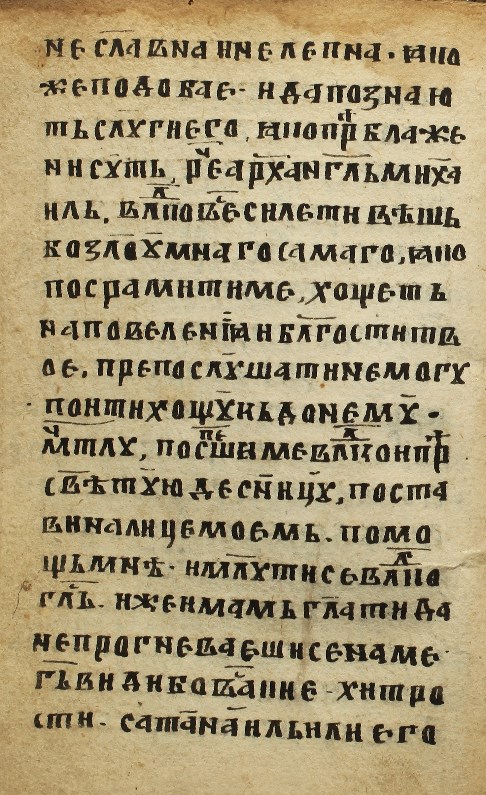 не славна н не лепна · ꙗко
же подобае · и да познаю
ть слꙋгн его, ꙗко прⷭ҇ блаже
ни сꙋть, реⷱ҇ архангл҃ь миха
иль. влⷣко веси летн вѣшь
во злоꙋмнаго самаго, ꙗко
посрамити ме, хощеть
на повеленїꙗ и бл҃гости тв
ое. прѣпослꙋшати не могꙋ
понти хощꙋ кь до немꙋ ·
мⷱ҇тлꙋ, посⷫ҇шн ме влⷣкон прⷭ҇
свѣтꙋю десницꙋ, поста
ви на лице моемь. помо
щь мнѣ · н мл҃ꙋтн се влⷣко
гл҃ь. иже имамь гл҃ати да
не прогневаеши се на ме ·
гь҃ видн кова̄ние · хитро
сти · сатананль или его